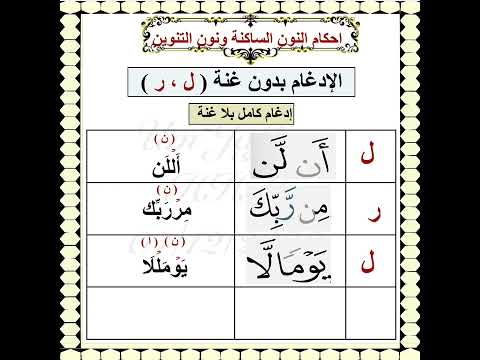 احكام النون الساكنة ونون التنوين
الإدغام بدون غنة ( ل ، ر )
إدغام كامل بلا غنة
ل أَن لَّن (ن) أَلْلَن
ر مِن رَّبِّكَ (ن) مِرْرَبِّك
ل يَوْمًا لَّا (ن) (ا) يَوْمَلْلَا